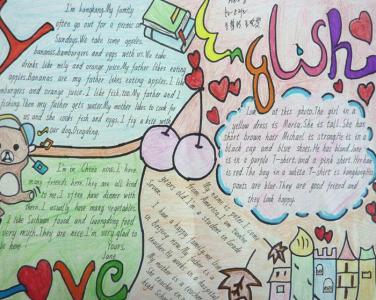 I'm kangkang. My family
often go out for a picnic on
Sundays. We take some apples,
bananas, hamburgers and eggs with us. We take
drinks like milk and orange juice. My father likes eating
apples. Bananas are my father likes eating apples. I
hamburgers and orange juice. I like fish, too. My father and I
fishing. Then my father gets water. My mother likes to cook for
us and she cooks fish and eggs. I fly a kite with
our dog, Dingding.
English
Look at this photo. The girl in a
yellow dress is Maria. She is tall. She has
short brown hair. Michael is strong. He is in a
black cap and blue shoes. He has blond
is in a purple T-shirt and a pink short. Her hair
is red. The boy in a white T-shirt is kangkang. His
pants are blue. They are good friend and
they look happy.
I'm in China now. I have
many friends here. They are all kind
to me. I often have dinner with
them. I usually have many vegetables.
I like Sichuan food and Guangdong food
very much. They are nice. I'm very glad to
be here
Yours,
Jane
My name is peter. I come
from America. I'm twelve
years old. I am a student in Grade
Seven.
I have a happy family
My father is a
teacher. He works in a high
My mother is a
She teaches
High School